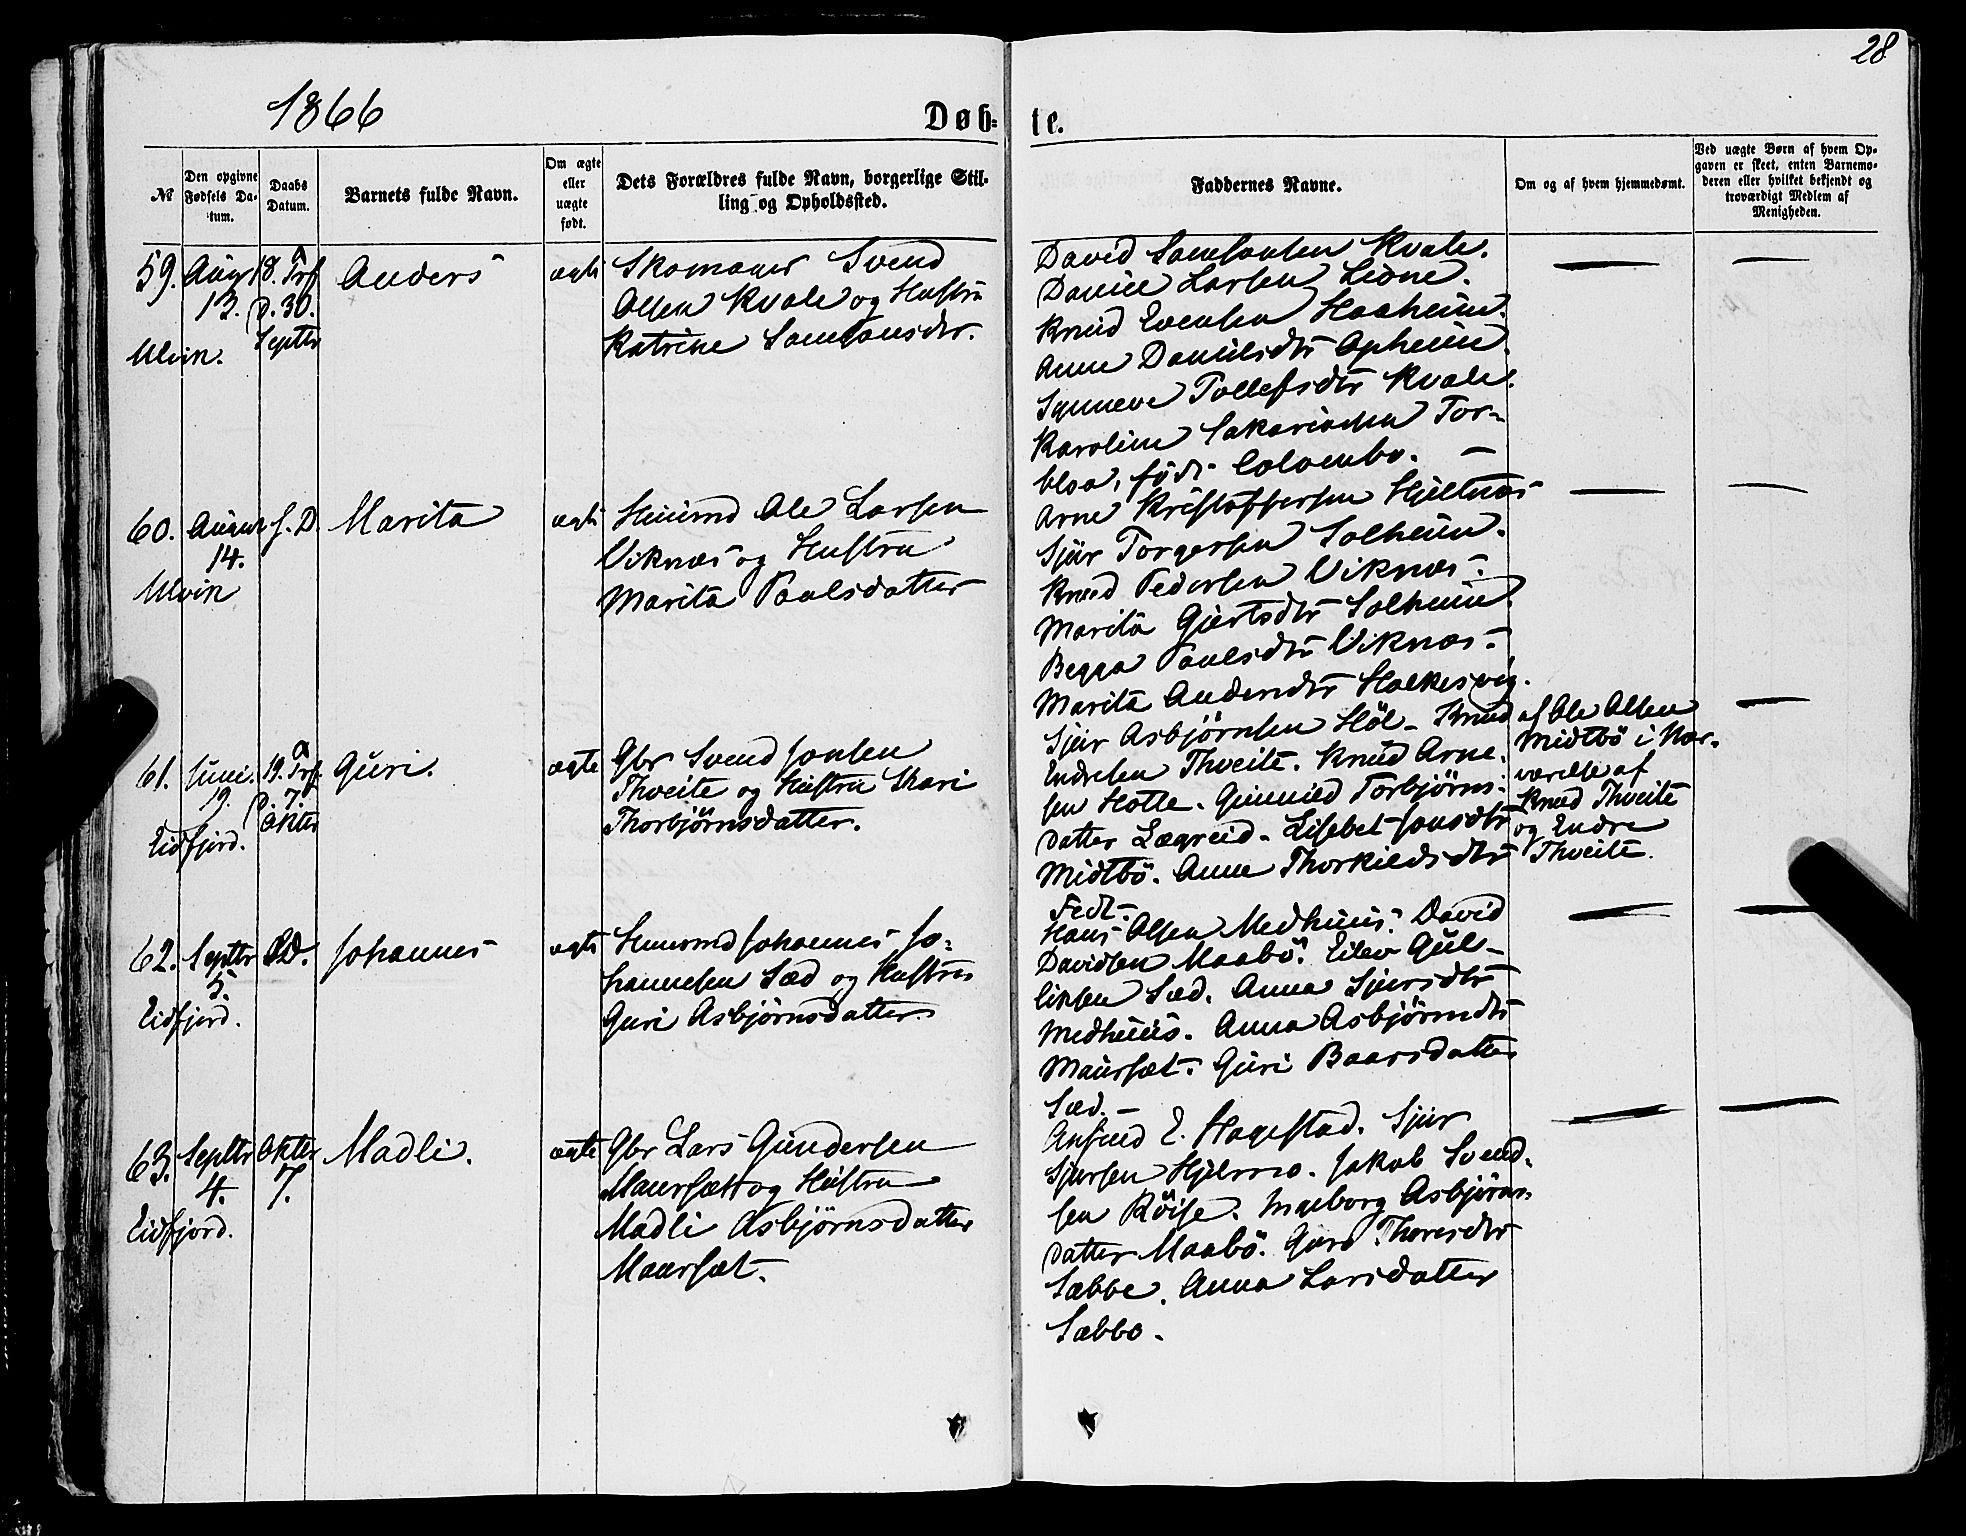 28
1866
Døb- te.
№
Den opgivne Fødsels Da-tum.
Daabs Datum.
Barnets fulde Navn.
Om ægte eller uægte født.
Dets Forældres fulde Navn, borgerlige Stil-
ling og Opholdssted.
Faddernes Navne.
Om og af hvem hjemmedømt.
Ved uægte Børn af hvem Op-
gaven er skeet, enten Barnemo-
deren eller hvilket bekjendt og
troværdigt Medlem af
Menigheden.
59. Aug 18. Anders ægte Skomager Svend
13. D. 30. Olsen Kvale og Hustru
Ulvik. Septbr Katrine Samsonsdtr.
David Samsonsen Kvale.
Daniel Larsen Lione.
Knud Evensen Haaheim.
Anne Danielsdtr Opheim.
Synneve Tollefsdtr Kvale.
Karoline Sakariasen Tor-
blaa, født
60. August s. D. Marita ægte Huusmd Ole Larsen
14. Viknæs og Hustru
Ulvik Marita Paulsdatter
Arne Kristoffersen Hjeltnæs
Sjur Torgersen Solheim.
Knud Pedersen Viknæs.
Marita Gjertsdtr Solheim.
Begga Paulsdtr Viknæs.
Marita Andersdtr Holkesvig.
61. Juni. 19. Guri. ægte Gbr Svend Jonsen
19. D. 7. Thveite og Hustru Kari
Eidfjord. Okter Thorbjörnsdatter.
Sjur Asbjörnsen Höl - Knud
Endresen Thveite. Knud Arne-
sen Hotle. Gunnild Torbjörns-
datter Lægreid - Lisbet Jonsdtr
Midtbö. Anne Thorkildsdtr
Fedt-
af Ole Olsen
Midtbö i Nær-
værelse af
Knud Thveite
og Endre
Thveite.
62. Septbr s.D. Johannes ægte Huusmd Johannes Jo-
5. hannesen Sæd og Hustru
Eidfjord. Guri Asbjörnsdatter
Hans Olsen Medhuus. David
Davidsen Maabö. Eilev Gul-
liksen Sæd. Anna Sjursdtr
Medhuus. Anna Asbjörnsdtr
Maursæt. Guri Baarsdatter
Sæd. -
63. Septbr Okter Madli. ægte Gbr Lars Gundersen
4. 7. Maursæt og Hustru
Eidfjord. Madli Asbjörnsdatter
Maursæt.
Anfind E. Hagestad. Sjur
Sjursen Hjelmo. Jakob Svend-
sen Röise. Ingeborg Asbjörns-
datter Maabö. Guro Thoresdtr
Sæbbe. Anna Larsdatter
Sæbbo.